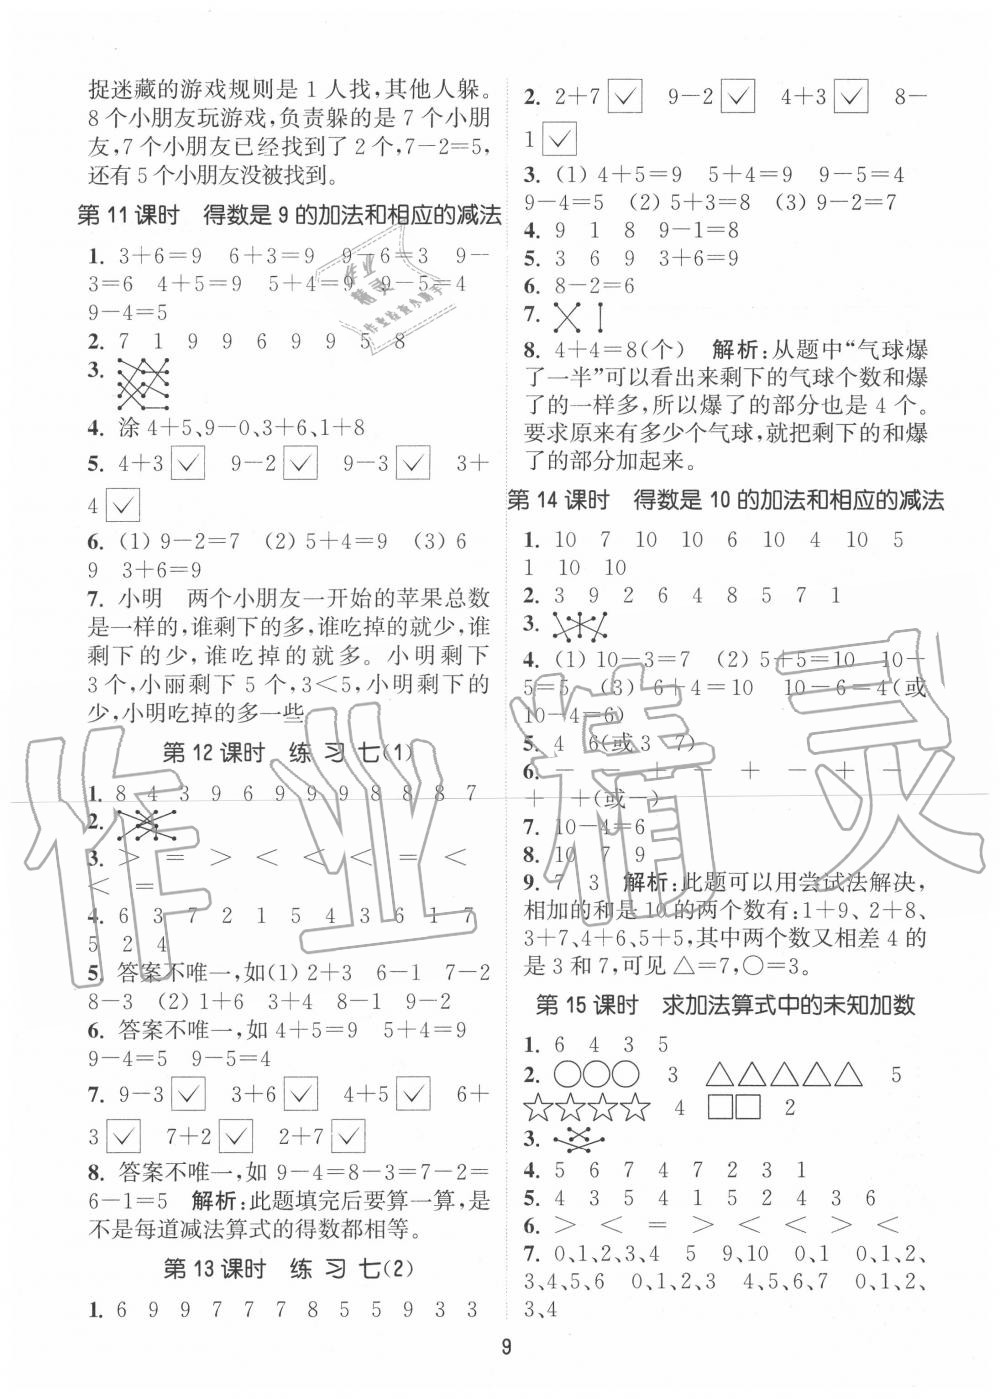 捉迷藏的游戏规则是 1 人找,其他人躲。
8 个小朋友玩游戏,负责躲的是 7 个小朋
友,7 个小朋友已经找到了 2 个,7－2＝5,
还有 5 个小朋友没被找到。
第 11 课时　得数是 9 的加法和相应的减法
1. 3＋6＝9　6＋3＝9　9－6＝3　9－
3＝6　4＋5＝9　5＋4＝9　9－5＝4
9－4＝5
2. 7　1　9　9　6　9　9　5　8
3.
4. 涂 4＋5、9－0、3＋6、1＋8
5. 4＋3 ✓　9－2 ✓　9－3 ✓　3＋
4 ✓
6. (1) 9－2＝7　(2) 5＋4＝9　(3) 6
9　3＋6＝9
7. 小明　两个小朋友一开始的苹果总数
是一样的,谁剩下的多,谁吃掉的就少,谁
剩下的少,谁吃掉的就多。小明剩下
3 个,小丽剩下 5 个,3＜5,小明剩下的
少,小明吃掉的多一些
第 12 课时　练 习 七(1)
1. 8　4　3　9　6　9　9　9　8　8　8　7
2.
3. ＞　＝　＞　＜　＜　＜　＝　＜
＜　＝
4. 6　3　7　2　1　5　4　3　6　1　7
5　2　4
5. 答案不唯一,如(1) 2＋3　6－1　7－2
8－3　(2) 1＋6　3＋4　8－1　9－2
6. 答案不唯一,如 4＋5＝9　5＋4＝9
9－4＝5　9－5＝4
7. 9－3 ✓　3＋6 ✓　4＋5 ✓　6＋
3 ✓　7＋2 ✓　2＋7 ✓
8. 答案不唯一,如 9－4＝8－3＝7－2＝
6－1＝5　解析:此题填完后要算一算,是
不是每道减法算式的得数都相等。
第 13 课时　练 习 七(2)
1. 6　9　9　7　7　7　8　5　5　9　3　3
2. 2＋7 ✓　9－2 ✓　4＋3 ✓　8－
1 ✓
3. (1) 4＋5＝9　5＋4＝9　9－5＝4
9－4＝5　(2) 5＋3＝8　(3) 9－2＝7
4. 9　1　8　9－1＝8
5. 3　6　9　3＋6＝9
6. 8－2＝6
7.
8. 4＋4＝8(个)　解析:从题中“气球爆
了一半”可以看出来剩下的气球个数和爆
了的一样多,所以爆了的部分也是 4 个。
要求原来有多少个气球,就把剩下的和爆
了的部分加起来。
第 14 课时　得数是 10 的加法和相应的减法
1. 10　7　10　10　6　10　4　10　5
1　10　10
2. 3　9　2　6　4　8　5　7　1
3.
4. (1) 10－3＝7　(2) 5＋5＝10　10－
5＝5　(3) 6＋4＝10　10－6＝4(或
10－4＝6)
5. 4　6(或 3　7)
6. －　－　＋　－　＋　－　＋　－
＋　＋(或－)
7. 10－4＝6
8. 10　7　9
9. 7　3　解析:此题可以用尝试法解决,
相加的和是 10 的两个数有:1＋9、2＋8、
3＋7、4＋6、5＋5,其中两个数又相差 4 的
是 3 和 7,可见 △＝7,○＝3。
第 15 课时　求加法算式中的未知加数
1. 6　4　3　5
2. ○○○　3　△△△△△　5
☆☆☆☆　4　□□　2
3.
4. 5　6　7　4　7　2　3　1
5. 4　3　5　4　1　5　2　4　3　6
6. ＞　＜　＝　＞　＜　＜　＞　＞
7. 0、1、2、3、4　5　9、10　0、1　0、1、2、
3、4、5、6　0、1、2、3　4、5、6、7　0、1、2、
3、4
9
作业精灵